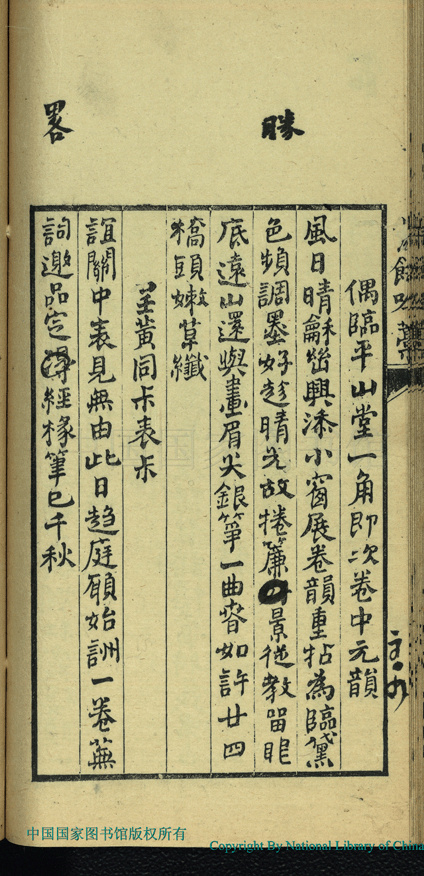 勝
畧
偶臨平山堂一角即次卷中元韻
風日晴龢興添小窗展卷韻重拈為臨黛
色頻調墨好趁晴光故捲簾景從教留眼
底遠山還與畫眉尖銀箏一曲春如許廿四
橋頭嫩草纖
呈黃同尗表尗
誼關中表見無由此日趨庭願始詶一卷蕪
詞邀品定得經椽筆已千秋
中国国家图书馆版权所有
Copyright By National Library of China